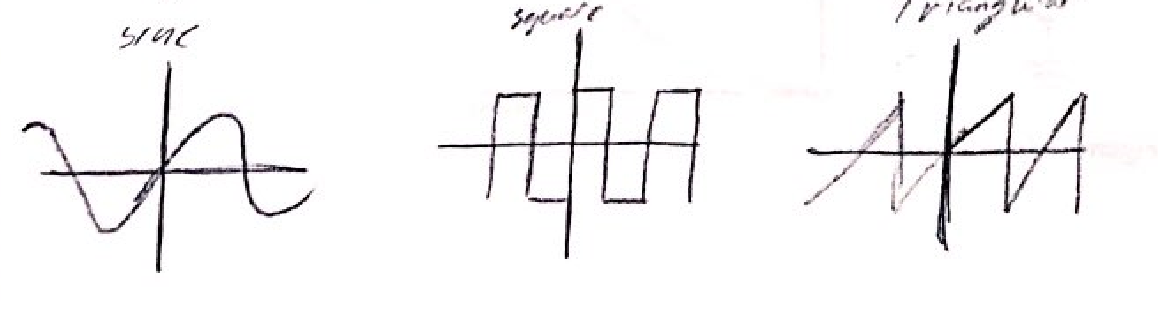 sine
square
Triangular